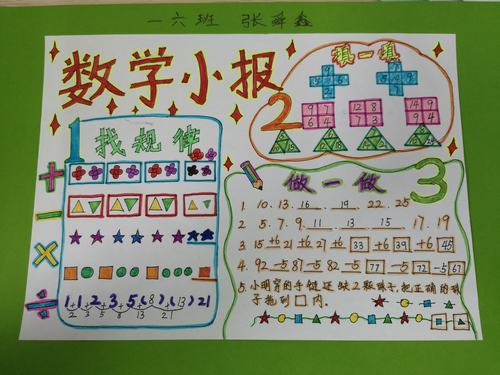 一六班 张舜鑫
数学小报
1 找规律
1,1,2,3,5,(8),(13)21
2 3 5 8 13 21
2 填一填
9 7
6 4
12 8
7 3
14 9
9 4
3 做一做
1. 10. 13. 16 19 22. 25
2. 5. 7. 9. 11 13 15 17. 19
3. 15 +6 21 +6 27 +6 33 +6 39 +6 45
4. 92 -5 87 -5 82 -5 77 -5 72 -5 67
5. 小明穿的手链还缺2颗珠子,把正确的珠
子拖到□内。